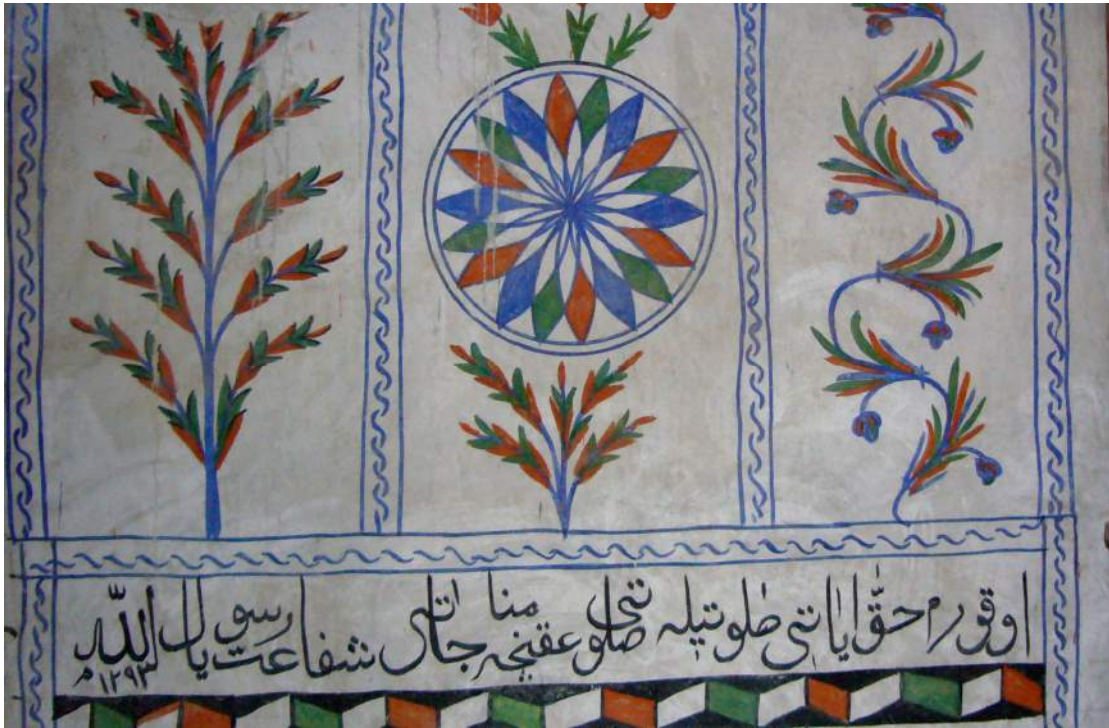 اوقورم حقّ اياتنى طلوتيله صلوتنى عقنجه مناجاتى شفاعت يا رسول اللّه ١٢٩٣م